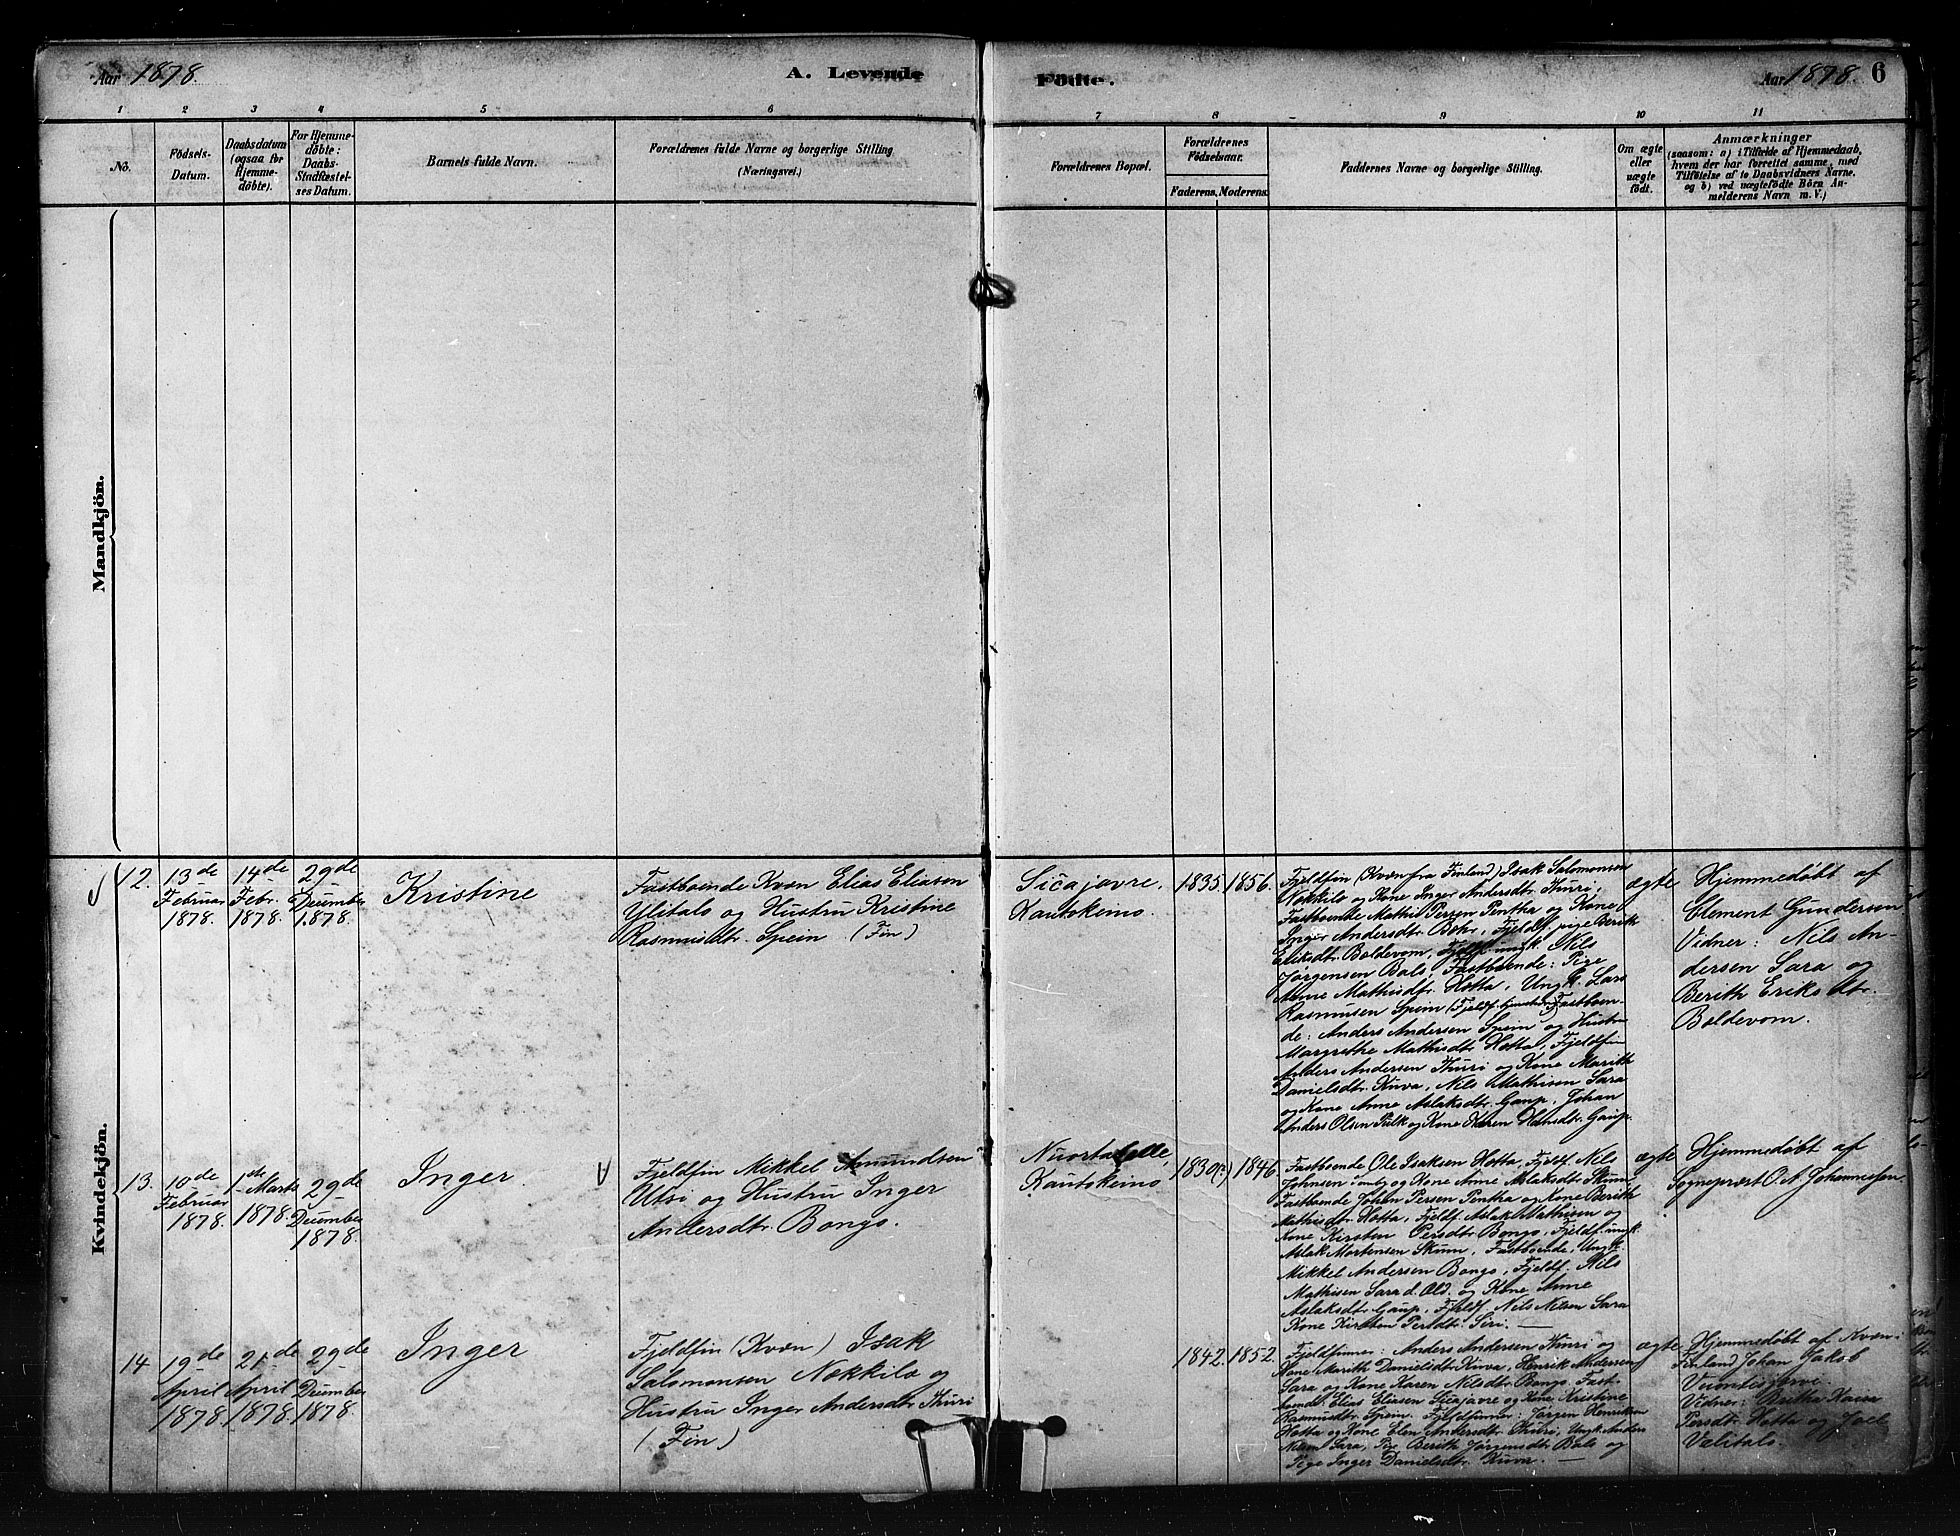 Aar 1878.
A. Levende
Födte.
Aar 1878.
6
1 2 3 4 5 6 7 8 9 10 11
No.
Födsels-
Datum.
Daabsdatum
(ogsaa for
Hjemme-
döbte).
For Hjemme-
döbte:
Daabs-
Stadfæstel-
ses Datum.
Barnets fulde Navn.
Forældrenes fulde Navne og borgerlige Stilling
(Næringsvei.)
Forældrenes Bopæl.
Forældrenes
Födselsaar.
Faderens. Moderens.
Faddernes Navne og borgerlige Stilling.
Om ægte
eller
uægte
födt.
Anmærkninger
(saasom: a) i Tilfælde af Hjemmedaab,
hvem der har forrettet samme, med
Tilföielse af to Daabsvidners Navne.
og b) ved uægtefödte Börn An-
melderens Navn m. V.)
Mandkjön.
Kvindekjön.
12.
13de
Februar
1878.
14de
Febr.
1878.
29de
December
1878.
Kristine
Fastboende Kvæn Elias Eliasen
Ylitalo og Hustru Kristine
Rasmusdtr. Spein (Fin)
Sicajavre.
Kautokeino.
1835. 1856.
Fjeldfin (Kvæn fra Finland) Isak Salomonsen
Nokkilo og Kone Inger Andersdtr. Thuri,
Fastboende Mathis Persen Pentha og Kone
Inger Andersdtr. Bähr, Fjeldf. pige Berith
Eriksdtr. Boldevom, Fjeldf. ungk. Nils
Jørgensen Bals, Fastboende: Pige
Anne Mathisdtr. Hotta, Ungk. Lars
Rasmusen Spein (Fjeldf. tjenende) Fastboen-
de: Anders Andersen Spein og Hustru
Margrethe Mathisdtr. Hotta, Fjeldfin
Anders Andersen Thuri og Kone Marith
Danielsdtr. Kuva, Nils Mathisen Sara
og Kone Anne Aslaksdtr. Gaup, Johan
Anders Olsen Pulk og Kone Karen Hansdtr. Gaup.
ægte
Hjemmedøbt af
Clement Gundersen
Vidner: Nils An-
dersen Sara og
Berith Eriksdtr.
Boldevom.
13.
10de
Februar
1878.
1ste
Marts
1878.
29de
December
1878.
Inger.
Fjeldfin Mikkel Amundsen
Utsi og Hustru Inger
Andersdtr. Bongo.
Kautokeino
1830(?) 1846
Fastboende Ole Isaksen Hotta, Fjeldf. Nils
Johnsen og Kone Anne Aslaksdtr. Skum,
Fastboende Johan Persen Pentha og Kone Berith
Mathisdtr. Hotta, Fjeldf. Aslak Mathisen og
Kone Kirsten Persdtr. Bongo, Fjeldf. ungk.
Aslak Mortensen Skum, Fastboende, Ungk.
Mikkel Andersen Bongo, Fjeldf. Nils
Mathisen Sara d. Old. og Kone Anne
Aslaksdtr. Gaup, Fjeldf. Nils Nilsen Sara
Kone Kirsten Persdtr. Siri. —
ægte
Hjemmedøbt af
Sognepræst O. A. Johannessen.
14
19de
April
1878.
21de
April
1878.
29de
December
1878.
Inger
Fjeldfin (Kvæn) Isak
Salomonsen Nokkilo og
Hustru Inger Andersdtr. Thuri
(Fin)
1842. 1852.
Fjeldfinner: Anders Andersen Thuri og
Kone Marith Danielsdtr. Kuva, Henrik Andersen
Sara og Kone Karen Nilsdtr. Bongo. Fast-
boende. Elias Eliasen Sicajavre og Kone Kristine
Rasmusdtr. Spein. Fjeldfinner: Jørgen Henriksen
Hotta og Kone Elen Andersdtr. Thuri, Ungk. Anders
Nilsen Sara, Pige Berith Jørgensdtr. Bals og
Pige Inger Danielsdtr. Kuva. —
ægte
Hjemmedøbt af Kvæn:
Finland Johan Jakob
Vuontisjerve.
Vidner: Britha Kaisa
Persdtr. Hotta og Joel
Valitalo.